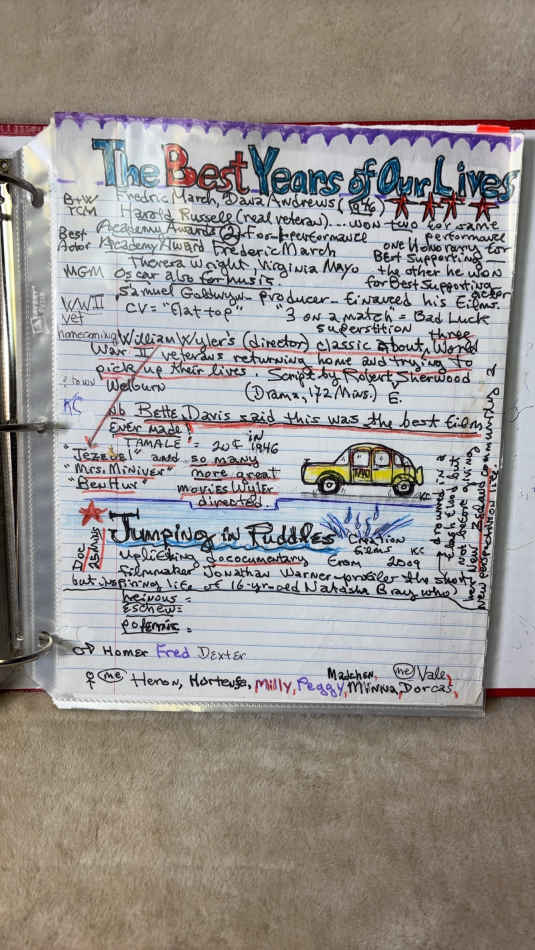 The Best Years of Our Lives
B+W Fredric March, Dana Andrews (
TCM Harold Russell (real veteran)... won two for same performance
Best Actor Academy Awards (2) for 1 performance one Honorary for
Academy Award Fredric March Best Supporting
Theresa Wright, Virginia Mayo the other he won
MGM Oscar also for music. for Best Supporting actor
Samuel Goldwyn - producer - financed his films.
WWII vet CV = "flat top" "3 on a match = Bad Luck
superstition
homecoming William Wyler's (director) classic about three World
War II veterans returning home and trying to
pick up their lives. Script by Robert Sherwood
(Drama, 172 Mins.) E.
KC
Bette Davis said this was the best film
ever made!
TAMALE = 20¢ in 1946
"Jezebel" and so many
"Mrs. Miniver" more great
"Ben Hur" movies Wyler
directed.
TAXI
KC
Doc 25 mins
Jumping in Puddles
Cration films KC
Uplifting dococumentary from 2009
filmmaker Jonathan Warner - profiler the short
but inspiring life of 16-yr-oed Natasha Bray who
drowned in a
flash flood but
not before giving
her New Zealand communities a
new perspective on life.
heinous =
eschew =
polemic =
♂ Homer Fred Dexter
♀ me Heron, Hortense, Milly, Peggy, Madchen, Minna, me Vale, Dorcas,